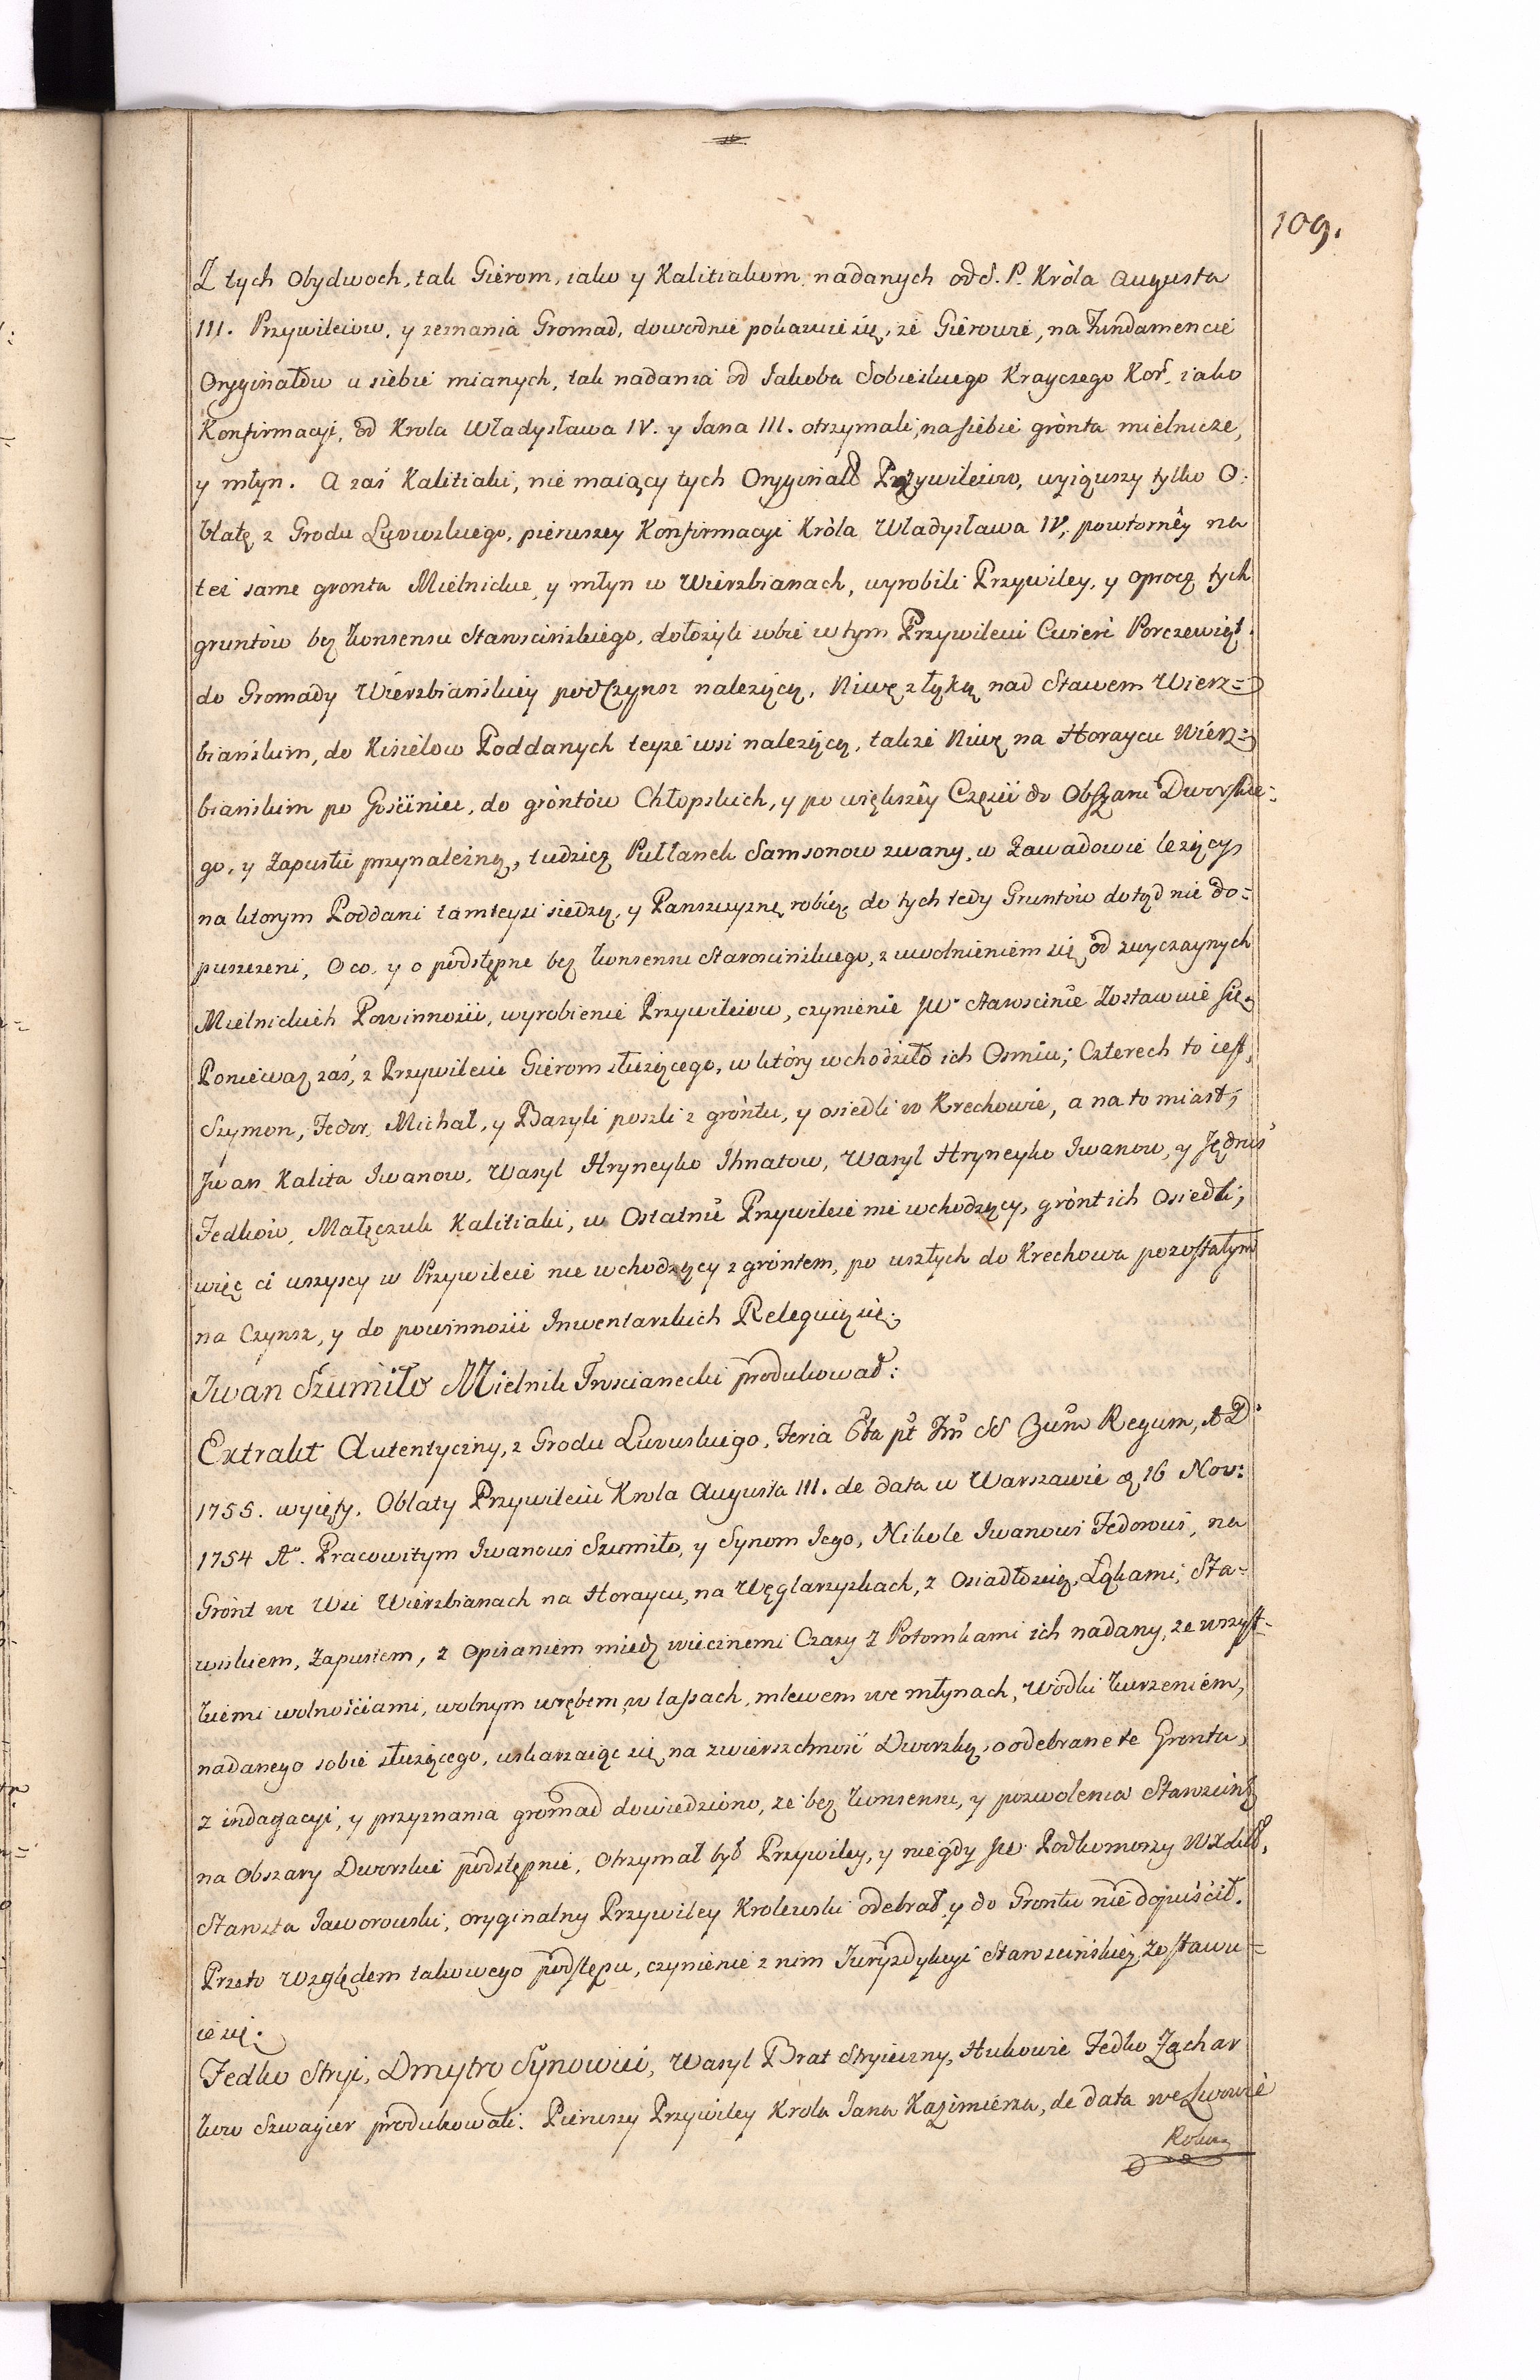 109.
Z tych Obydwoch, tak Gierom, iako y Kalitiakom nadanych od S. P. Króla Augusta
III. Przywileiow, y zeznania Gromad, dowodnie pokazuie się, że Gierowie, na Fundamencie
Oryginałow u siebie mianych, tak nadania od Jakoba Sobieskiego Krayczego Kor. iako
Konfirmacyi, od Krola Władysława IV. y Jana III. otrzymali, na siebie grónta mielnicze,
y młyn. A zaś Kalitiaki, nie maiący tych Oryginał Przywileiow, wyiąwszy tylko O:
blatę z Grodu Lwowskiego, pierwszey Konfirmacyi Króla Władysława IV, powtorny na
też same gronta Mielnickie, y młyn w Wierzbianach, wyrobili Przywiley, y oprocz tych
gruntów bez konsensu Starościńskiego, dołożyli sobie w tym Przywileiu Cwierć Porczewięt.
do Gromady Wierzbiańskiey pod Czynsz należącą, Niwę z łąką nad Stawem Wierz=
biańskim, do Kisielow Poddanych teyże wsi należącą, także Niwę na Horaycu Wierz=
biańskim po Gościniec, do gróntów Chłopskich, y po większey Części do Obszaru Dworskie=
go, y Zapustu przynależną, tudzież Pułłanek Samsonow zwany, w Zawadowie leżący,
na ktorym Poddani tamteysi siedzą, y Panszczyznę robią, do tych tedy Gruntów dotąd nie do=
puszczeni, O co, y o podstępne bez konsensu Starościńskiego, z uwolnieniem się od zwyczaynych
Mielnickich Powinności, wyrobienie Przywileiow, czynienie JW. Starościnie Zostawuie się.
Ponieważ zaś, z Przywileiu Gierom służącego, w który wchodziło ich Osmiu; Czterech to iest,
Szymon, Fedor, Michał, y Bazyli poszli z gróntu, y osiedli w Krechowie, a na to miast,
Jwan Kalita Jwanow, Wasyl Hryncyko Jhnatow, Wasyl Hryncyko Jwanow, y Jędruś
Fedków, Małęczuk Kalitiaki, w Ostatnie Przywileie nie wchodzący, grónt ich Osiedli,
więc ci wszyscy w Przywileie nie wchodzący z gróntem, po uszłych do Krechowa pozostałym
na Czynsz, y do powinności Jnwentarskich Releguią się.
Jwan Szumiło Mielnik Trościanecki produkował:
Extrakt Autentyczny, z Grodu Lwowskiego, Feria 6ta pt Fm SS 3um Regum, A D
1755. wyięty, Oblaty Przywileiu Krola Augusta III. de data w Warszawie 16 Nov:
1754 A. Pracowitym Jwanowi Szumiło, y Synom Jego, Nikole Jwanowi Fedorowi, na
Grónt we Wsi Wierzbianach na Horaycu, na Węglarzyskach, z Osiadłością, Łąkami, Sta=
wiskiem, Zapustem, z opisaniem miedz wiecznemi Czasy z Potomkami ich nadany, ze wszyst=
kiemi wolnościami, wolnym wrębem w lasach, mlewem we młynach, Wódki kurzeniem,
nadanego sobie służącego, uskarzaiąc się na zwierzchność Dworską, o odebrane te Gronta,
z indagacyi, y przyznania gromad dowiedziono, że bez konsensu, y pozwolenia Starościńs.
na Obszary Dworskie podstępnie, Otrzymał był Przywiley, y niegdy JW Podkomorzy
Starosta Jaworowski, oryginalny Przywiley Krolewski odebrał, y do Grontu nie dopuścił.
Przeto względem takowego podstępu, czynienie z nim Juryzdykcyi Starościńskiey zostawu=
ie się.
Fedko Stryi, Dmytro Synowiec, Wasyl Brat Stryieczny, Hukowie Fedko Zachar
kow Szwagier produkowali: Pierwszy Przywiley Krola Jana Kazimierza, de data we Lwowie
Roku